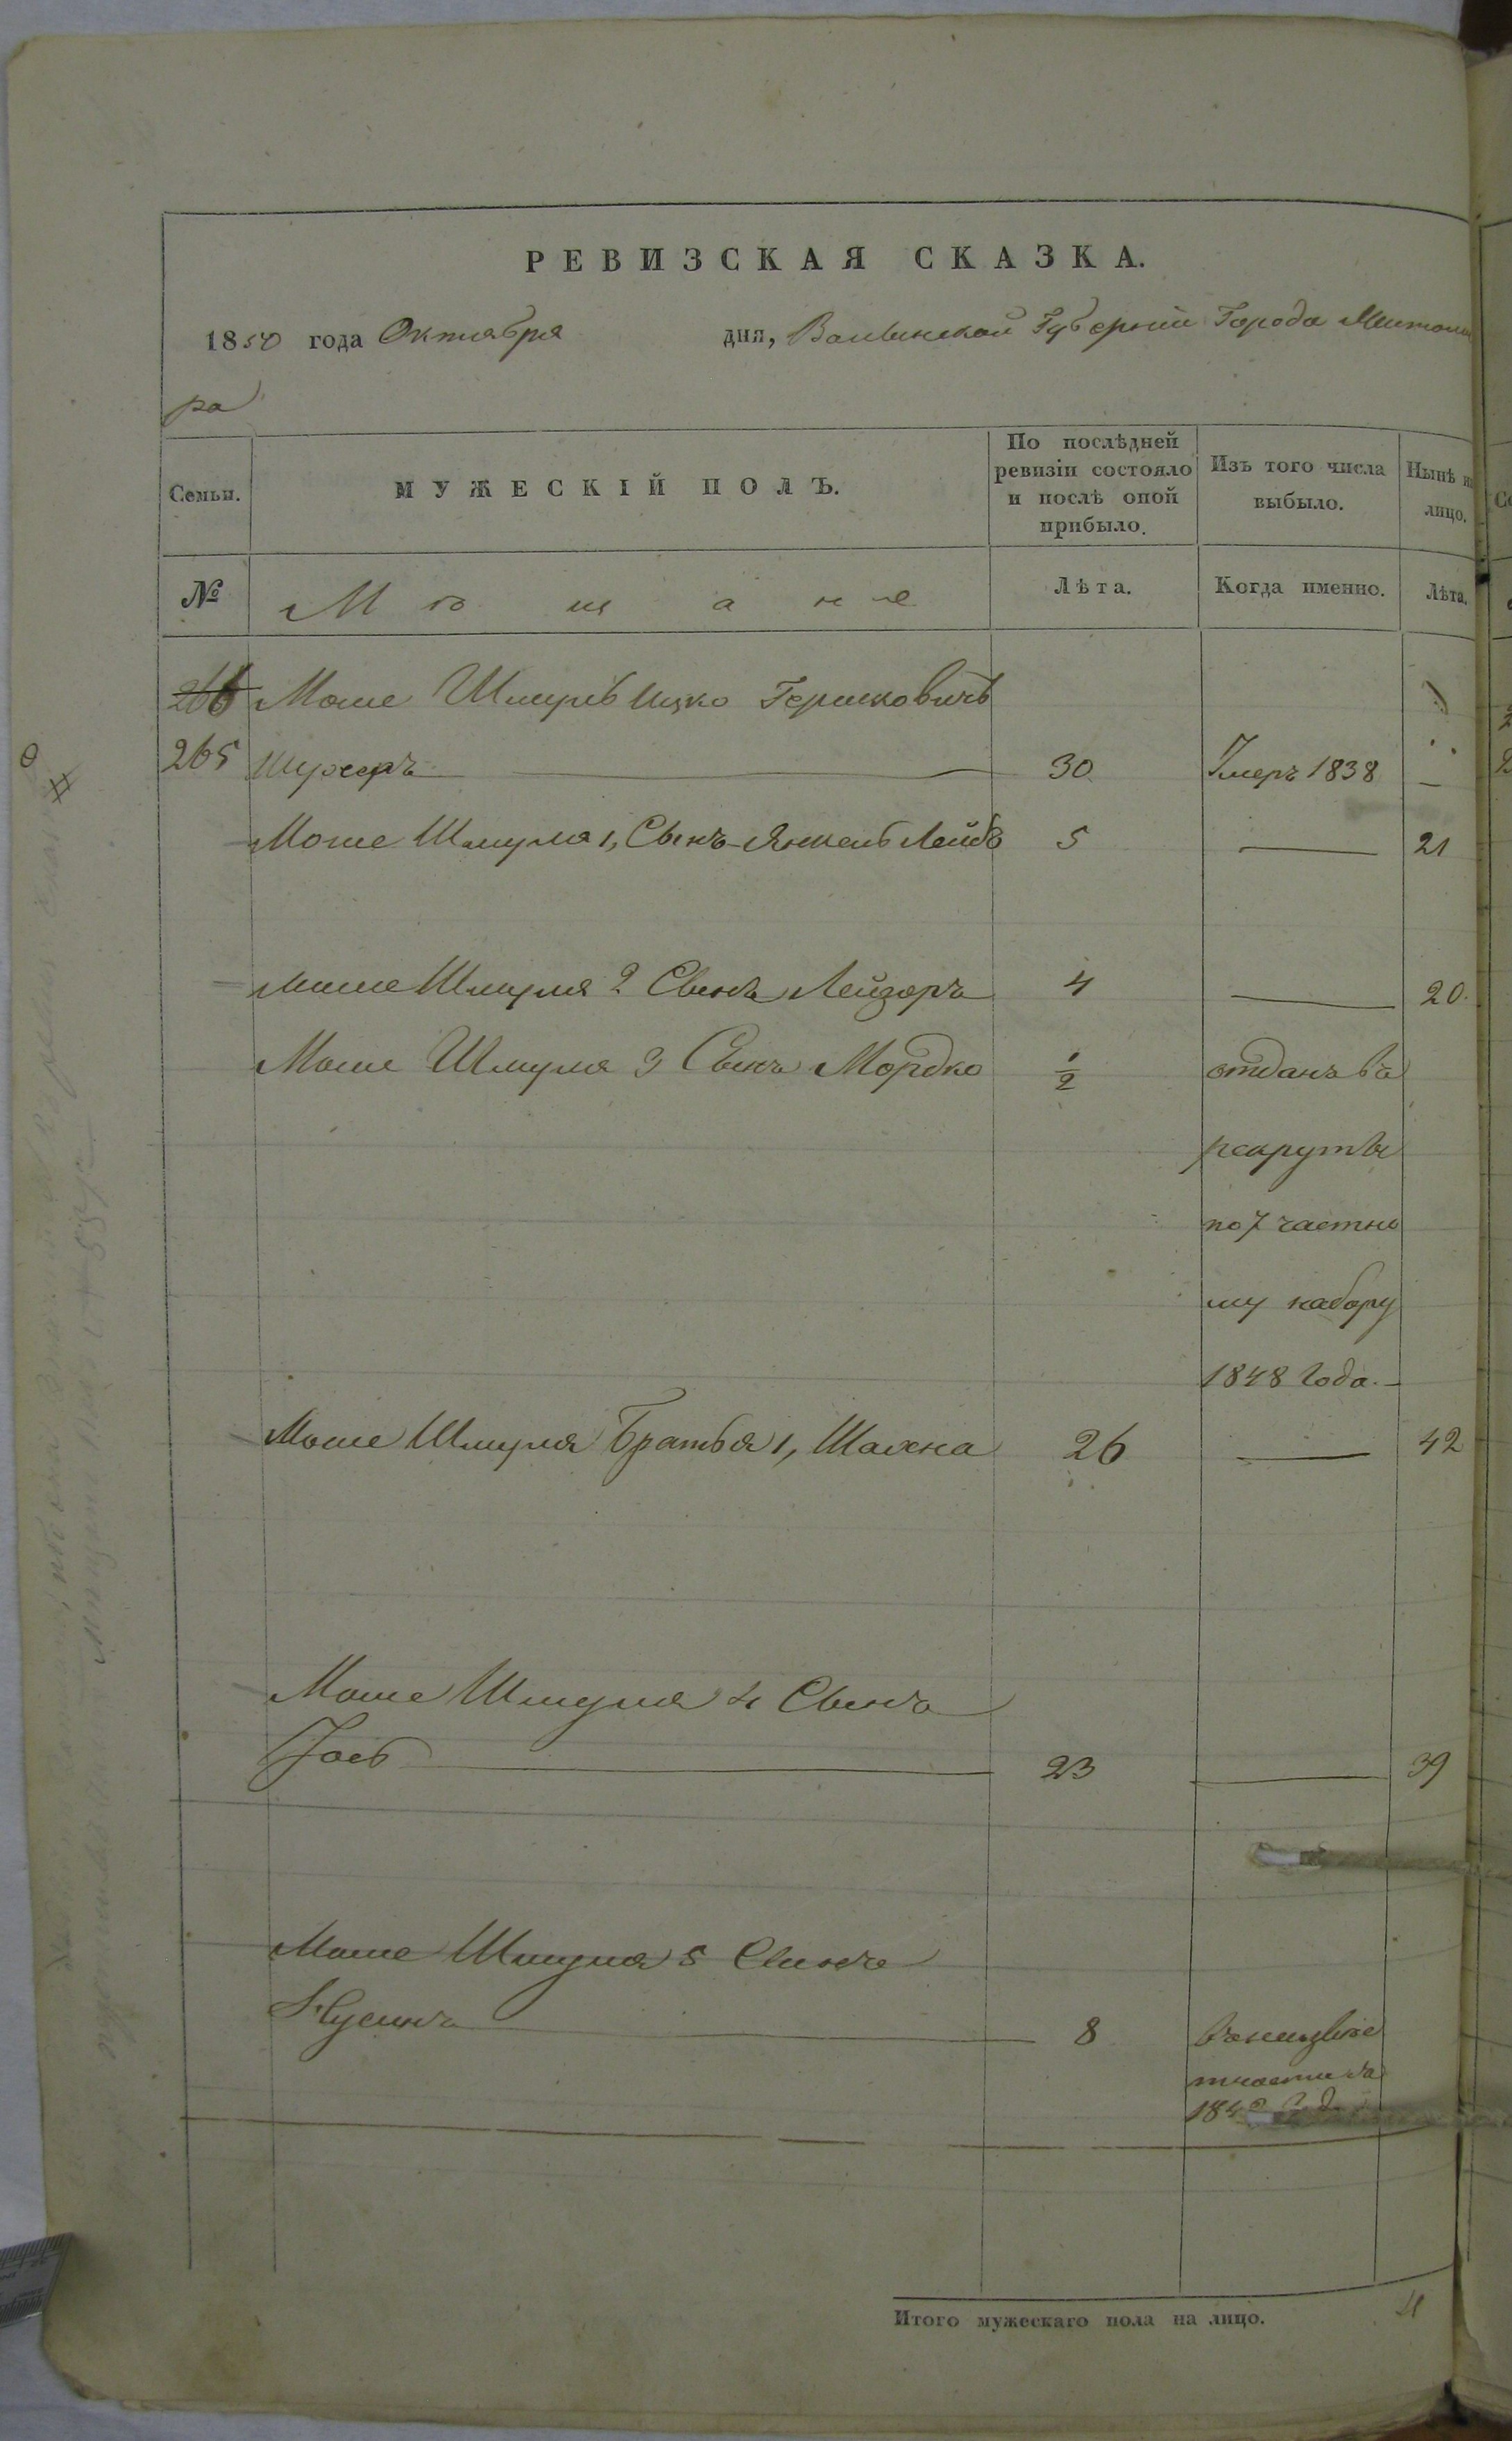 РЕВИЗСКАЯ СКАЗКА.
1850 года Октября дня, Волынской Губернїи Города Житоми
ра
Семьи.
МУЖЕСКІЙ ПОЛЪ.
По послѣдней ревизіи состояло и послѣ оной прибыло.
Изъ того числа выбыло.
Нынѣ на лицо.
№
Мѣщане
Лѣта.
Когда именно.
Лѣта.
266 Моше Шмуль Ицко Гершковичъ
265 30 Умеръ 1838 —
Моше Шмуля 1, Сынъ Янкель Лейбъ 5 — 21
Моше Шмуля 2 Сынъ Лейзоръ 4 — 20.
Моше Шмуля 3 Сынъ Мордко 1/2 отданъ въ
рекруты
по 7 частно
му набору
1848 Года.
Моше Шмуля Братья 1, Шахна 26 — 42
Моше Шмуля 4 Сынъ
Іось 23 — 39
Моше Шмуля 5 Сынъ
Нусинъ 8
Итого мужескаго пола на лицо. 4